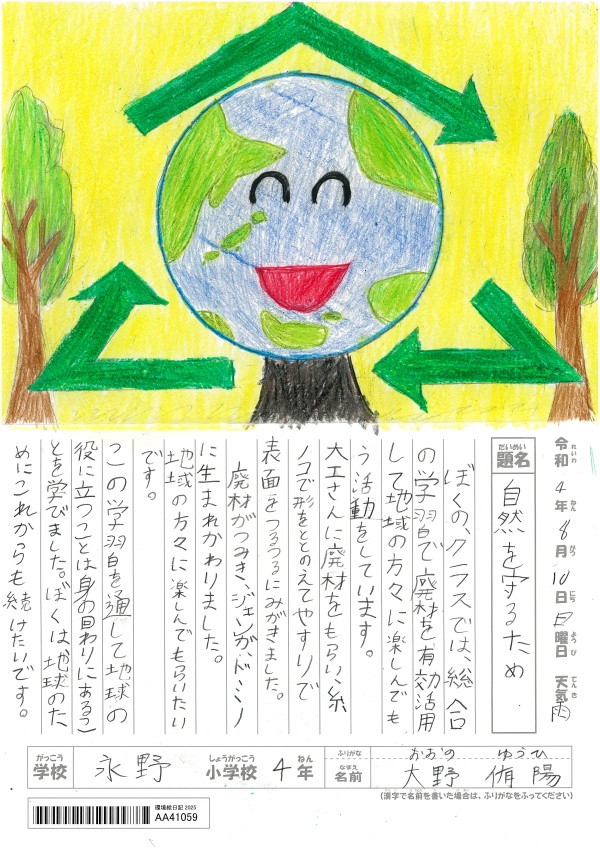 令和4年8月10日日曜日 天気雨
れいわ ねん がつ にち ようび てんき
だいめい
題名 自然を守るため
ぼくの、クラスでは、総合
の学習で廃材を有効活用
して地域の方々に楽しんでも
う活動をしています。
大工さんに廃材をもらい、糸
ノコで形をととのえてやすりで
表面をつるつるにみがきました。
廃材がつみき、ジェンガ、ドミノ
に生まれかわりました。
地域の方々に楽しんでもらいたい
です。
この学習を通して地球の
役に立つことは身の回りにあるこ
とを学びました。ぼくは、地球のた
めにこれからも続けたいです。
がっこう しょうがっこう ねん ふりがな おおの ゆうひ
学校 永野 小学校 4年 なまえ 名前 大野 侑陽
(漢字で名前を書いた場合は、ふりがなをふってください)
環境絵日記 2025
AA41059